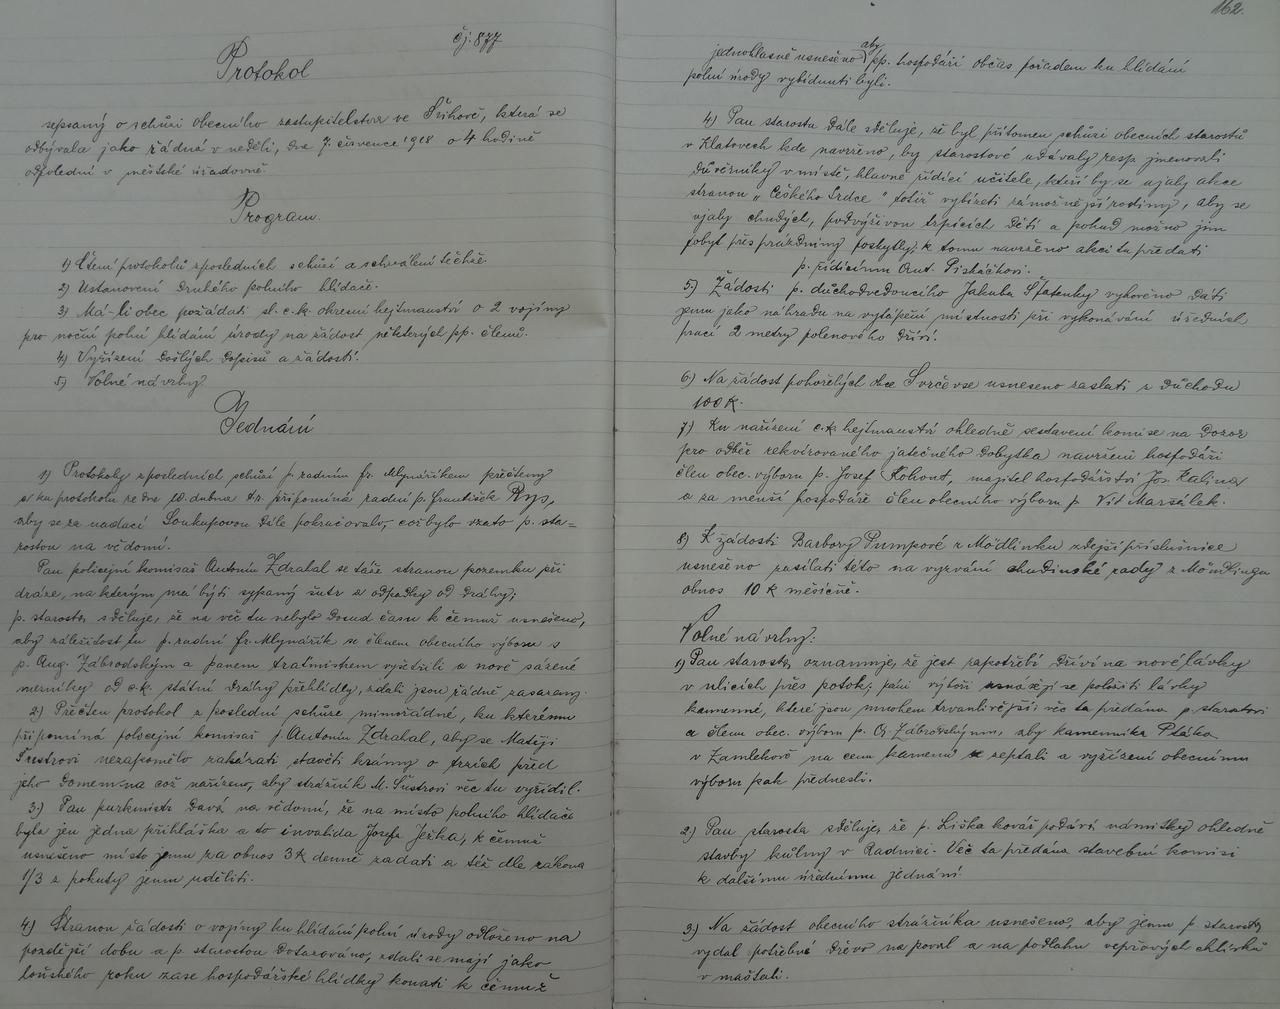 čj: 877
Protokol
sepsaný o schůzi obecního zastupitelstva ve Švihově, která se
odbývala jako řádná v neděli, dne 7. července 1918 o 4 hodině
odpolední v městské úřadovně.
Program.
1) Čtení protokolů z posledních schůzí a schválení těchže.
2) Ustanovení druhého polního hlídače.
3) Má-li obec požádati sl. c.k. okresní hejtmanství o 2 vojíny
pro noční polní hlídání úrody na žádost některých pp. členů.
4) Vyřízení došlých dopisů a žádostí.
5) Volné návrhy.
Jednání
1) Protokoly z posledních schůzí p. radním Fr. Mlynaříkem přečteny
a ku protokolu ze dne 10. dubna t.r. připomíná radní p. František Rys,
aby se za nadací Soukupovou dále pokračovalo, což bylo vzato p. sta=
rostou na vědomí.
Pan policejní komisař Antonín Zdrahal se táže stranou pozemku při
dráze, na kterým má býti sypaný šutr a odpadky od dráhy;
p. starosta sděluje, že na věc tu nebylo dosud času k čemuž usnešeno,
aby záležitost tu p. radní Fr. Mlynařík se členem obecního výboru s
p. Aug. Zábrodským a panem traťmistrem vyšetřili a nově sázené
mezníky od c.k. státní dráhy přehlídly, zdali jsou řádně zasazeny.
2.) Přečten protokol z poslední schůze mimořádné, ku kterému
připomíná policejní komisař p. Antonín Zdrahal, aby se Matěji
Šustrovi nezapomělo zakázati stavěti krámy o trzích před
jeho domem na což nařízeno, aby strážník M. Šustrovi věc tu vyřídil.
3.) Pan purkmistr dává na vědomí, že na místo polního hlídače
byla jen jedna přihláška a to invalida Josefa Ježka, k čemuž
usnešeno místo jemu za obnos 3 K denně zadati a též dle zákona
1/3 z pokuty jemu uděliti.
4.) Stranou žádosti o vojíny ku hlídání polní úrody odloženo na
pozdější dobu a p. starostou dotazováno, zdali se mají jako
loňského roku zase hospodářské hlídky konati k čemuž
162.
jednohlasně usnešeno aby pp. hospodáři občas pořadem ku hlídání
polní úrody vybídnuti byli.
4) Pan starosta dále sděluje, že byl přítomen schůzi obecních starostů
v Klatovech kde navrženo, by starostové udávaly resp. jmenovali
důvěrníky v místě, hlavně řídící učitele, kteří by se ujaly akce
stranou „Českého Srdce" totiž vybízeti zámožnější rodiny, aby se
ujaly chudých, podvýživou trpících dětí a pokud možno jim
pobyt přes prázdniny poskytly; k tomu navrženo akci tu předati
p. řídícímu Ant. Piskáčkovi.
5.) Žádosti p. důchodvedoucího Jakuba Šťatenky vyhověno dáti
jemu jako náhradu na vytápění místnosti při vykonávání úředních
prací 2 metry polenového dříví.
6) Na žádost pohořelých obce Svrčevse usneseno zaslati z důchodu
100 K.
7) Ku nařízení c.k. hejtmanství ohledně sestavení komise na dozor
pro odběr rekvírovaného jatečného dobytka navrženi hospodáři
člen obec. výboru p. Josef Kohout, majitel hospodářství Jos. Kalina
a za menší hospodáře člen obecního výboru p. Vít Maršálek.
8) K žádosti Barbory Pumpové z Mödlinku zdejší příslušnice
usneseno zasílati této na vyzvání chudinské rady z Mömdlingu
obnos 10 K měsíčně.
Volné návrhy:
1) Pan starosta oznamuje, že jest zapotřebí dříví na nové lávky
v ulicích přes potok; páni výboři usnášejí se položiti lávky
kamenné, které jsou mnohem trvanlivější; věc ta předána p. starostovi
a členu obec. výboru p. Og. Zábrodským, aby kameníka Ptáka
v Zamlekově na cenu kamenů se zeptali a vyřízení obecnímu
výboru pak přednesli.
2.) Pan starosta sděluje, že p. Liška kovář podává námitky ohledně
stavby kůlny v Radnici. Věc ta předána stavební komisi
k dalšímu úřednímu jednání.
3.) Na žádost obecního strážníka usnešeno, aby jemu p. starosta
vydal potřebné dřevo na poval a na podlahu vepřových chlívků
v maštali.